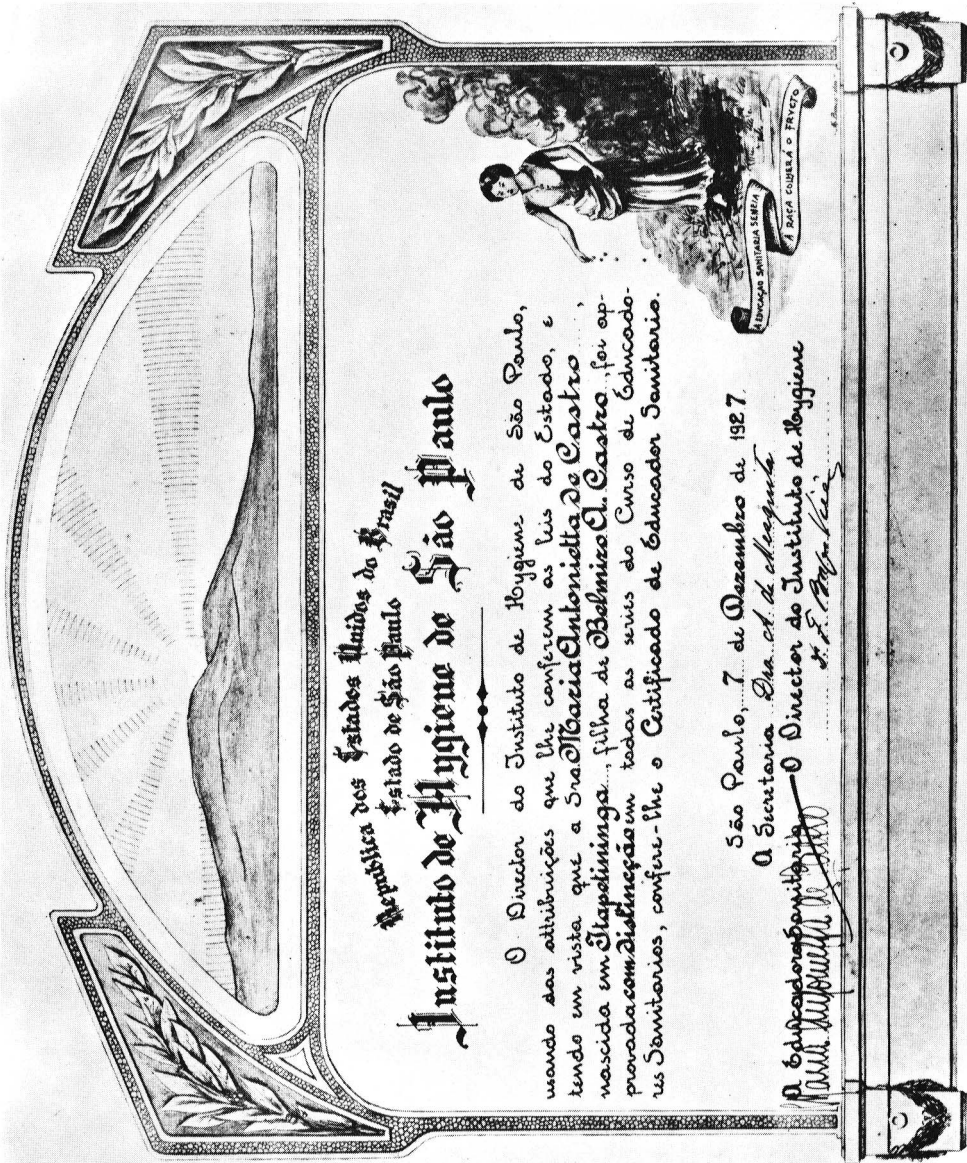 Republica dos Estados Unidos do Brasil
Estado de São Paulo
Instituto de Hygiene de São Paulo
O Director do Instituto de Hygiene de São Paulo,
usando das attribuições que lhe conferem as leis do Estado, e
tendo em vista que a Sra Maria Antonietta de Castro,
nascida em Itapetininga, filha de Belmiro A. Castro, foi ap-
provada com distincção em todas as series do Curso de Educado-
res Sanitarios, confere-lhe o Certificado de Educador Sanitario.
São Paulo, 7 de Dezembro de 1927.
A Secretaria Dra. A. de Mesquita
A Educadora Sanitaria O Director do Instituto de Hygiene
Maria Antonietta de Castro
A EDUCAÇÃO SANITARIA SEMEIA
A RAÇA COLHERÁ O FRVCTO